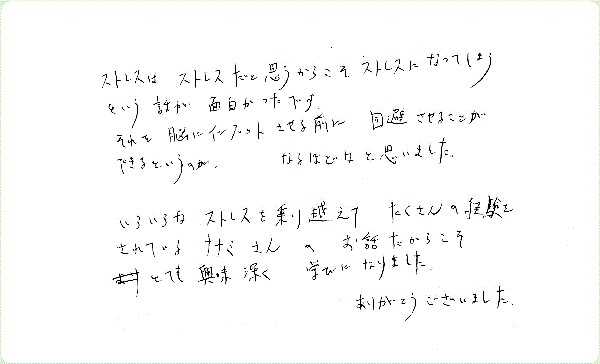 ストレスは ストレスだと思うからこそ ストレスになってしまう
という 話が 面白かったです.
それを 脳にインプット させる前に 回避 させることが
できるというのが. なるほどなと思いました.
いろいろな ストレスを乗り越えて たくさんの経験を
されている ナミさん の お話だからこそ
とても 興味 深く 学びになりました.
ありがとうございました.